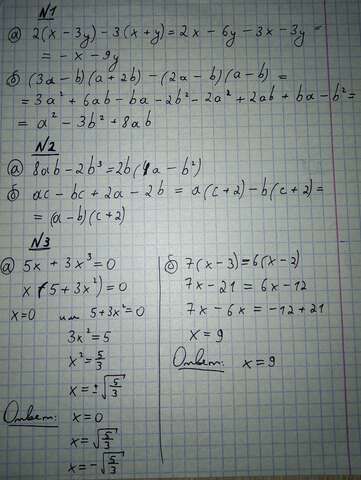 N1
а) 2(x - 3y) - 3(x + y) = 2x - 6y - 3x - 3y =
= - x - 9y
б) (3a - b)(a + 2b) - (2a - b)(a - b) =
= 3a² + 6ab - ba - 2b² - 2a² + 2ab + ba - b² =
= a² - 3b² + 8ab
N2
а) 8ab - 2b³ = 2b(4a - b²)
б) ac - bc + 2a - 2b = a(c + 2) - b(c + 2) =
= (a - b)(c + 2)
N3
а) 5x + 3x³ = 0
x (5 + 3x²) = 0
x = 0 или 5 + 3x² = 0
3x² = 5
x² = 5/3
x = ±√(5/3)
Ответ: x = 0
x = √(5/3)
x = -√(5/3)
б) 7(x - 3) = 6(x - 2)
7x - 21 = 6x - 12
7x - 6x = -12 + 21
x = 9
Ответ: x = 9